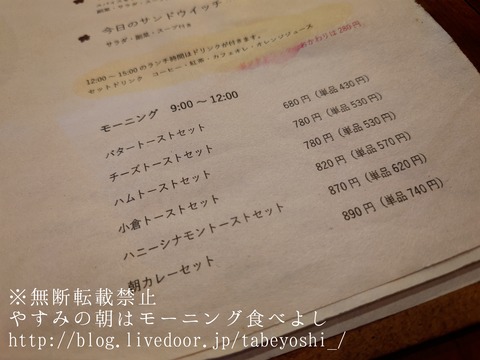 今日のサンドウイッチ
サラダ・副菜・スープ付き
12:00～15:00のランチ時間はドリンクが付きます。
セットドリンク　コーヒー・紅茶・カフェオレ・オレンジジュース
おかわりは280円
モーニング　9:00～12:00
バタートーストセット　680円（単品430円）
チーズトーストセット　780円（単品530円）
ハムトーストセット　780円（単品530円）
小倉トーストセット　820円（単品570円）
ハニーシナモントーストセット　870円（単品620円）
朝カレーセット　890円（単品740円）
※無断転載禁止
やすみの朝はモーニング食べよし
http://blog.livedoor.jp/tabeyoshi_/